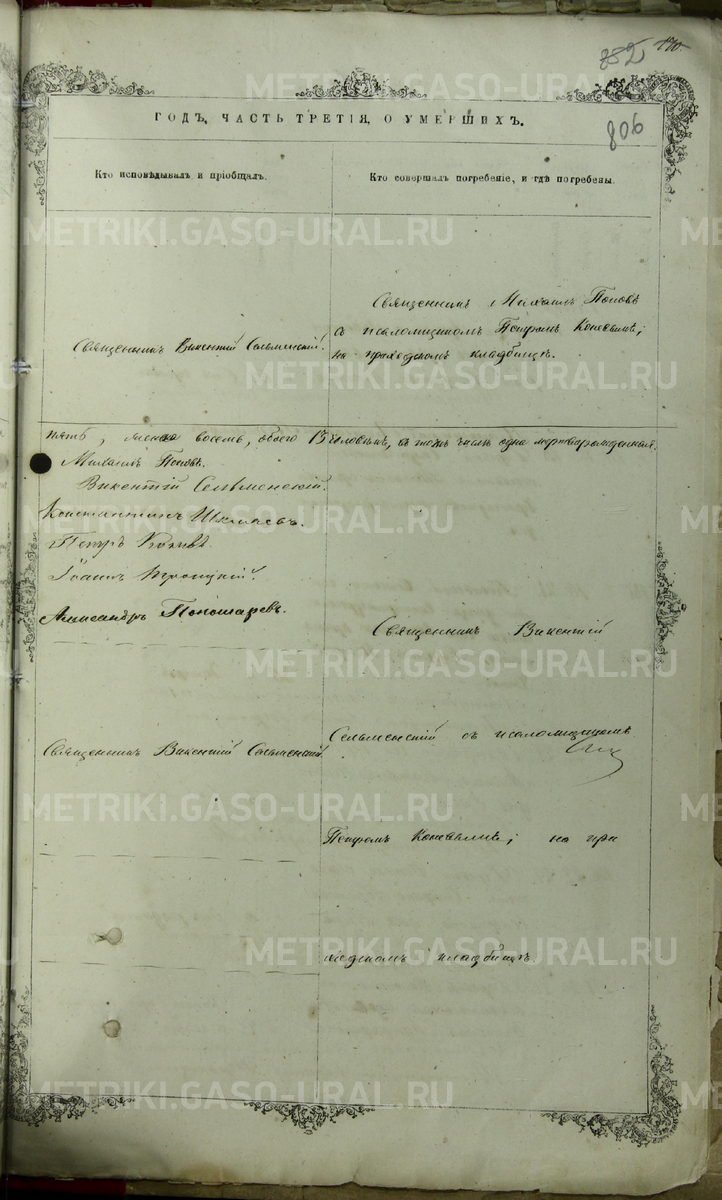 852 170
806
ГОДЪ, ЧАСТЬ ТРЕТІЯ, О УМЕРШИХЪ.
Кто исповѣдывалъ и пріобщалъ.
Кто совершалъ погребеніе, и гдѣ погребены.
Священникъ Викентій Сельменскій.
Священникъ Михаилъ Поповъ
съ псаломщикомъ Петромъ
на приходскомъ кладбищѣ.
пять, женска восемь, обоего 13 человѣкъ, въ томъ числѣ одна мертворожденная.
Михаилъ Поповъ.
Викентій Сельменскій.
Константинъ
Петръ
Іоаннъ Троицкій.
Александръ Пономаревъ.
Священникъ Викентій
Священникъ Викентій Сельменскій.
Сельменскій съ псаломщикомъ
Петромъ на при
ходскомъ кладбищѣ.
METRIKI.GASO-URAL.RU